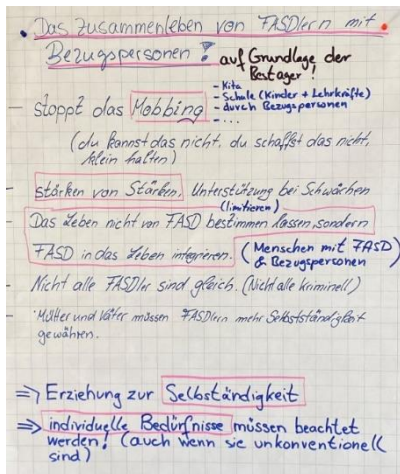 • Das Zusammenleben von FASDlern mit •
Bezugspersonen!
auf Grundlage der
Bestager!
- stoppt das Mobbing
- Kita
- Schule (Kinder + Lehrkräfte)
- durch Bezugspersonen
- ...
(du kannst das nicht, du schaffst das nicht,
klein halten)
- stärken von Stärken, Unterstützung bei Schwächen
(limitieren)
- Das Leben nicht von FASD bestimmen lassen, sondern
FASD in das Leben integrieren. (Menschen mit FASD
& Bezugspersonen)
- Nicht alle FASDler sind gleich. (Nicht alle kriminell)
- Mütter und Väter müssen FASDlern mehr Selbstständigkeit
gewähren.
=> Erziehung zur Selbständigkeit
=> individuelle Bedürfnisse müssen beachtet
werden! (auch wenn sie unkonventionell
sind)